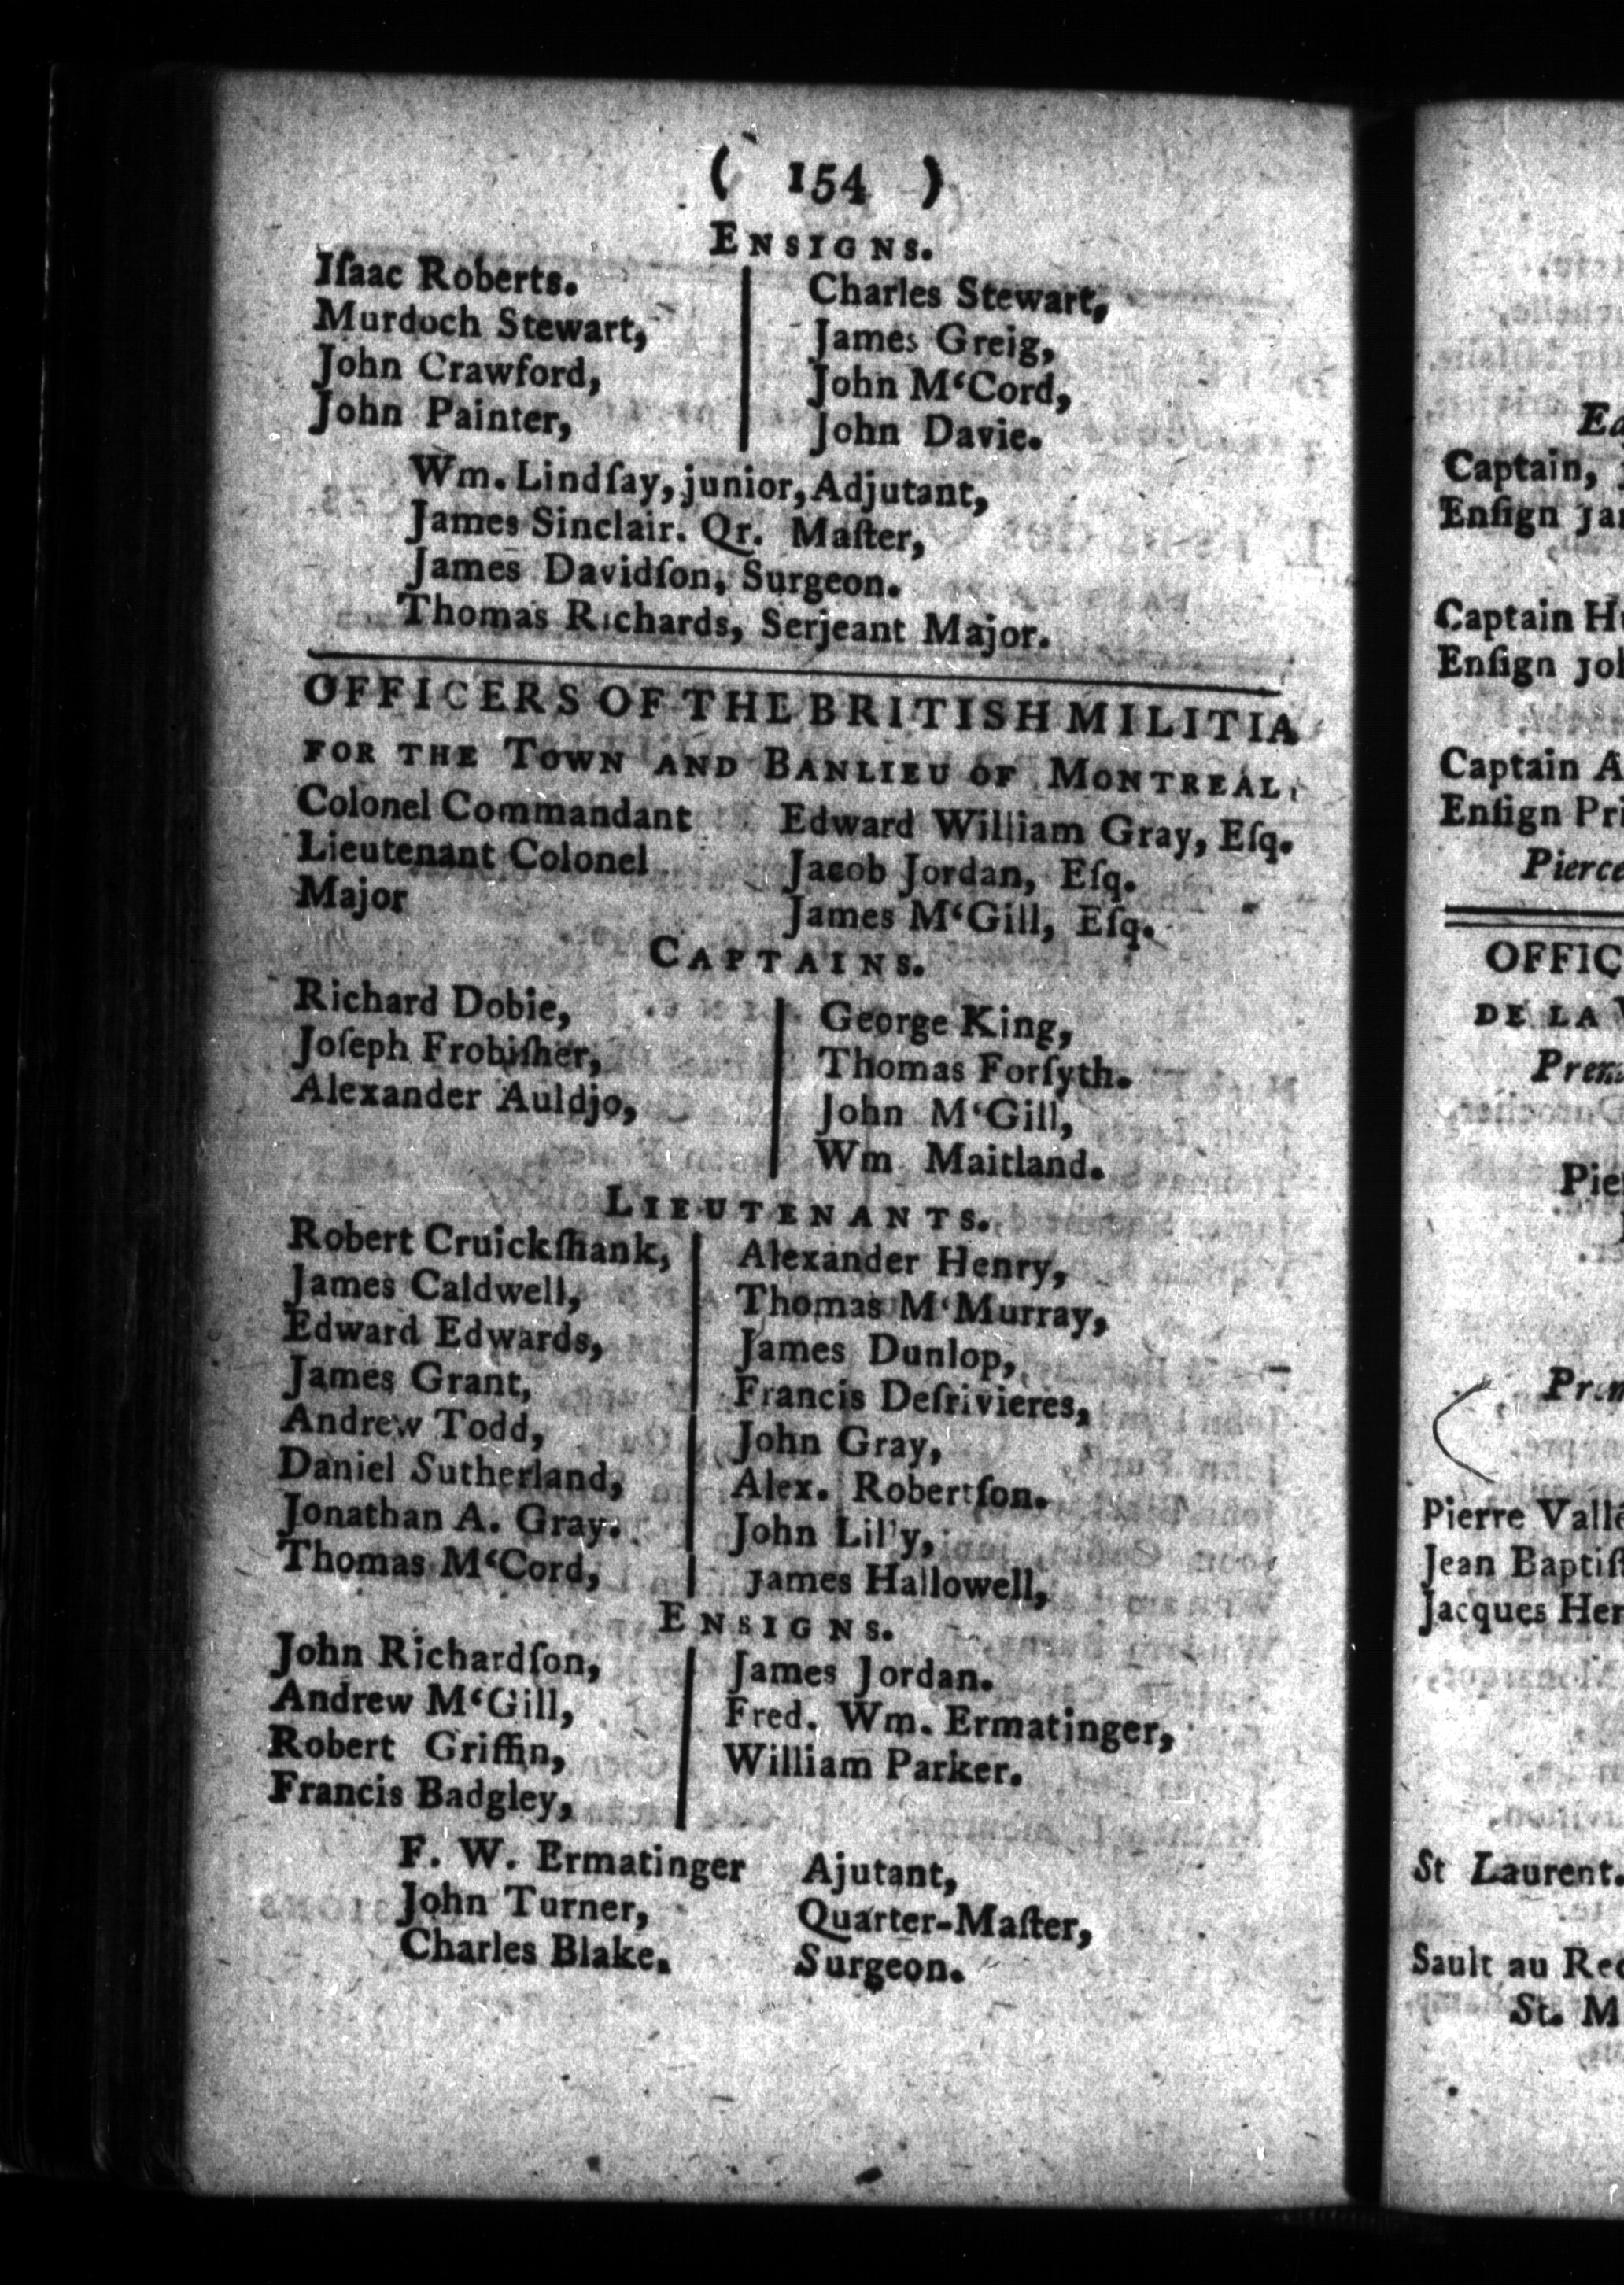 ( 154 )
ENSIGNS.
Iſaac Roberts.
Murdoch Stewart,
John Crawford,
John Painter,
Charles Stewart,
James Greig,
John M‘Cord,
John Davie.
Wm. Lindſay, junior, Adjutant,
James Sinclair. Qr. Maſter,
James Davidſon, Surgeon.
Thomas Richards, Serjeant Major.
OFFICERS OF THE BRITISH MILITIA
FOR THE TOWN AND BANLIEU OF MONTREAL,
Colonel Commandant Edward William Gray, Eſq.
Lieutenant Colonel Jacob Jordan, Eſq.
Major James M‘Gill, Eſq.
CAPTAINS.
Richard Dobie,
Joſeph Frobiſher,
Alexander Auldjo,
George King,
Thomas Forſyth.
John M‘Gill,
Wm Maitland.
LIEUTENANTS.
Robert Cruickſhank,
James Caldwell,
Edward Edwards,
James Grant,
Andrew Todd,
Daniel Sutherland,
Jonathan A. Gray.
Thomas M‘Cord,
Alexander Henry,
Thomas M‘Murray,
James Dunlop,
Francis Deſrivieres,
John Gray,
Alex. Robertſon.
John Lilly,
James Hallowell,
ENSIGNS.
John Richardſon,
Andrew M‘Gill,
Robert Griffin,
Francis Badgley,
James Jordan.
Fred. Wm. Ermatinger,
William Parker.
F. W. Ermatinger Ajutant,
John Turner, Quarter-Maſter,
Charles Blake. Surgeon.
Captain,
Enſign
Captain
Enſign
Captain
Enſign
DE LA
Pierre
Jean
Jacques
St Laurent.
Sault au
St.